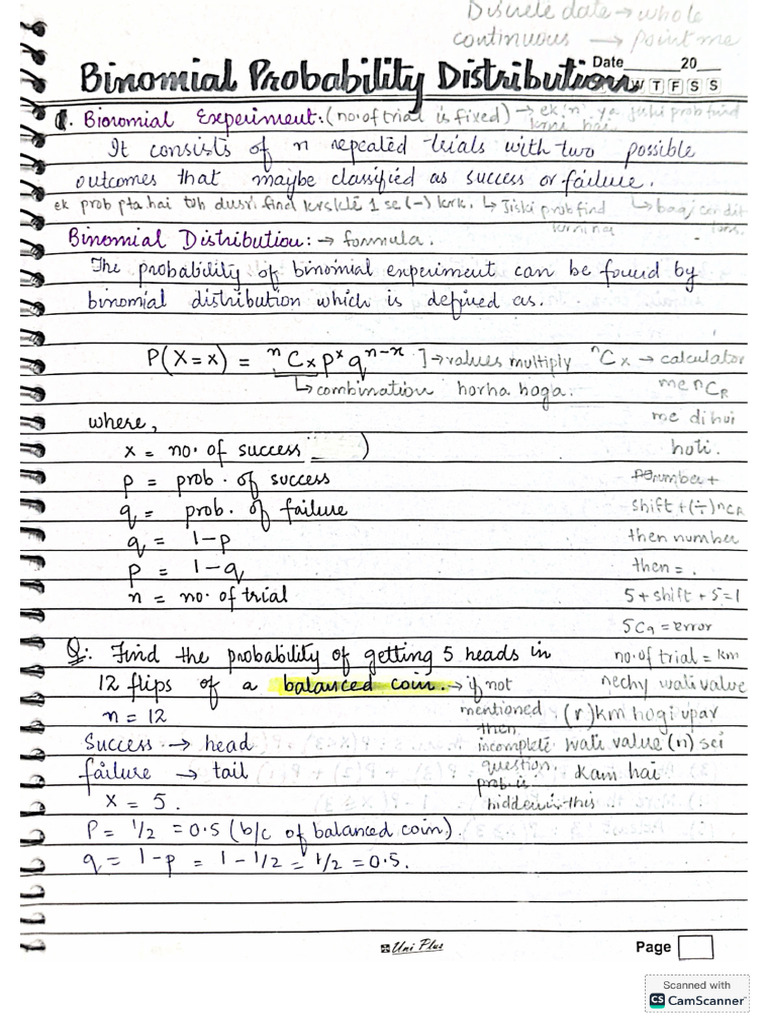 Discrete date → whole
continuous → point me
Date 20
Binomial Probability Distribution
W T F S S
1. Bionomial Experiment: (no. of trial is fixed) → ek 'n' ya jiski prob find
krni hai
It consists of n repeated trials with two possible
outcomes that maybe classified as success or failure.
ek prob pta hai toh dusri find krskte 1 se (-) krk. ↳ Jiski prob find ↳ baaj condit
krni
Binomial Distribution: → formula.
The probability of binomial experiment can be found by
binomial distribution which is defined as.
P(X=x) = ⁿCx pˣ qⁿ⁻ˣ ] → values multiply ⁿCx → calculator
↳ combination horha hoga. me nCR
where, me di hui
x = no. of success ) hoti.
p = prob. of success number +
q = prob. of failure shift + (÷) nCR
q = 1-p then number
p = 1-q then = .
n = no. of trial 5 + shift + 5 = 1
5C9 = error
Q: Find the probability of getting 5 heads in no. of trial = km
12 flips of a balanced coin. → if not nechy wali value
n = 12 mentioned (r) km hogi upar
then
Success → head incomplete wali value (n) sei
failure → tail question, kam hai
prob is
x = 5. hidden in this
P = 1/2 = 0.5 (b/c of balanced coin).
q = 1-p = 1-1/2 = 1/2 = 0.5.
Uni Plus
Page
Scanned with
CS CamScanner